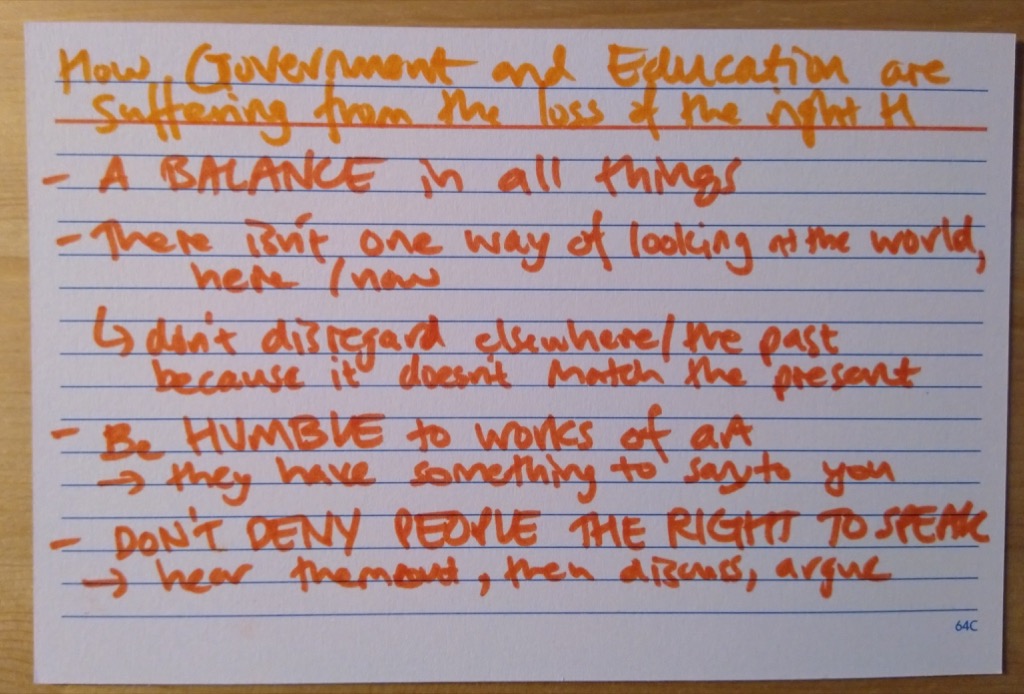 How Government and Education are
suffering from the loss of the right H
- A BALANCE in all things
- There isn't one way of looking at the world,
here / now
↳ don't disregard elsewhere/the past
because it doesn't match the present
- Be HUMBLE to works of art
→ they have something to say to you
- DON'T DENY PEOPLE THE RIGHT TO SPEAK
→ hear them out, then discuss, argue
64C